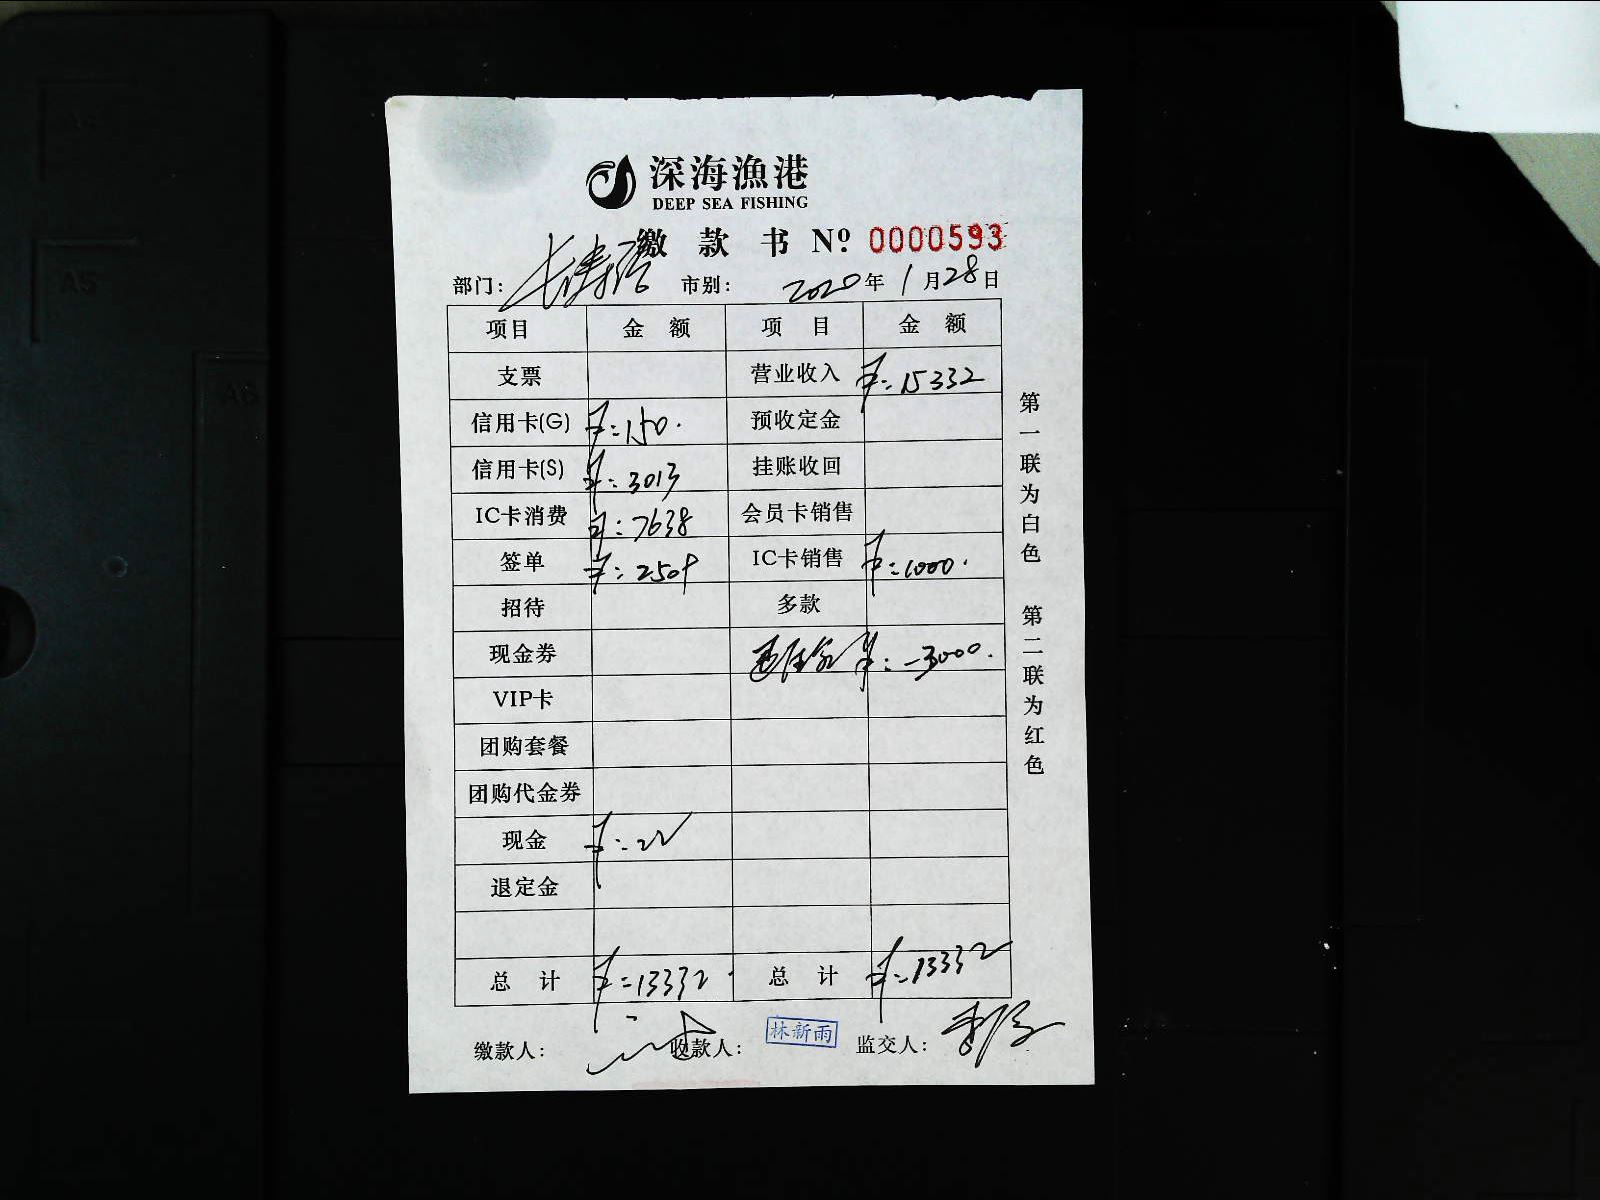 深海漁港
DEEP SEA FISHING
缴 款 书 Nº 0000593
部门: 长寿路 市别: 2020年1月28日
项目 金 额 项 目 金 额
支票 营业收入 ¥:15332
信用卡(G) ¥:150. 预收定金
信用卡(S) ¥:3013 挂账收回
IC卡消费 ¥:7638 会员卡销售
签单 ¥:2509 IC卡销售 ¥:1000.
招待 多款
现金券 ¥:-3000.
VIP卡
团购套餐
团购代金券
现金 ¥:22
退定金
总 计 ¥:13332. 总 计 ¥:13332
缴款人: 收款人: 林新雨 监交人:
第一联为白色 第二联为红色
A5
A6